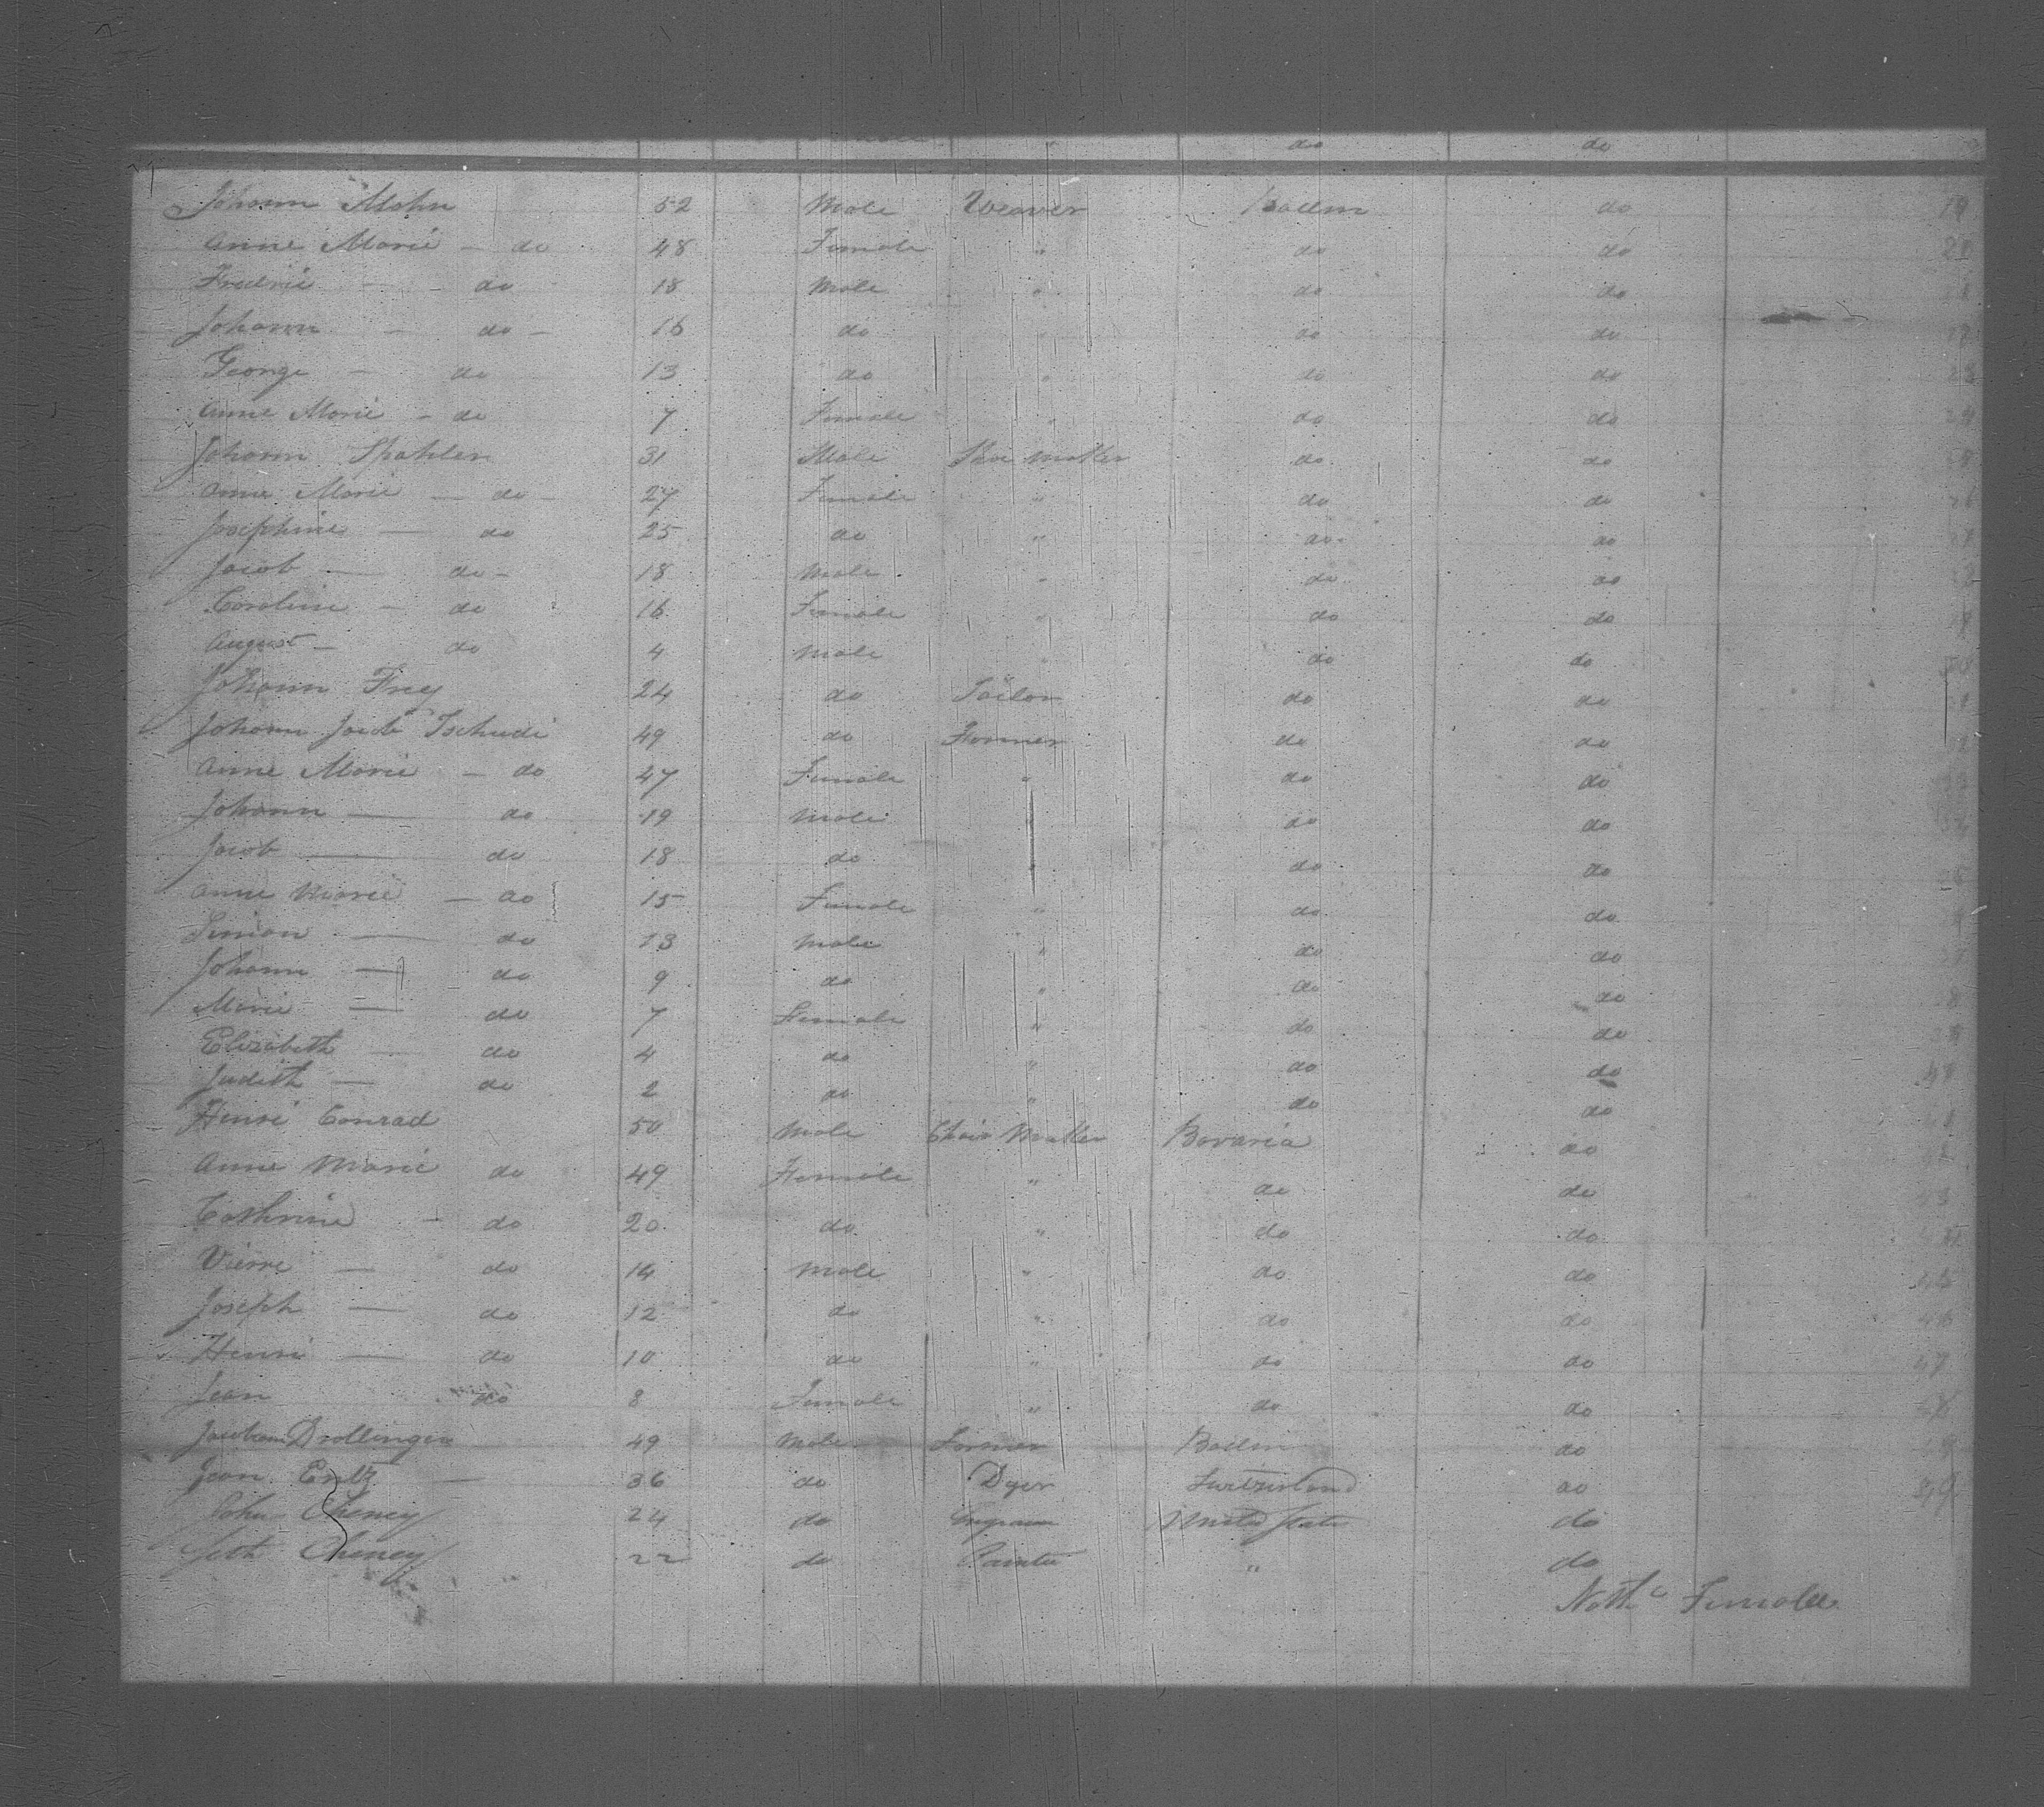 " do do
Johann Mohn 52 Male Weaver Baden do 19
Anne Marie - do 48 Female " do do
Frederic - do 18 Male " do do
Johann - do - 16 do " do do
George - do 13 do " do do 23
Anne Marie - do 7 Female " do do 24
Johann Spahler 31 Male Shoe Maker do do
Anne Marie - do - 27 Female " do do 26
Josephine - do 25 do " do do
Jacob - do - 18 Male " do do
Caroline - do 16 Female " do do
August - do 4 Male " do do
Johann Frey 24 do Tailor do do
Johann Jacob Tschudi 49 do Farmer do do
Anne Marie - do 47 Female " do do
Johann - do 19 Male " do do
Jacob - do 18 do " do do
Anne Marie - do 15 Female " do do
Simon - do 13 Male " do do
Johann - do 9 do " do do
Marie - do 7 Female " do do
Elizabeth - do 4 do " do do
Judith - do 2 do " do do
Henri Conrad 50 Male Chair Maker Bavaria do
Anne Marie do 49 Female " do do 43
Cathrine - do 20 do " do do
Pierre - do 14 Male " do do 45
Joseph - do 12 do " do do 46
Henri - do 10 do " do do 47
Jean do 8 Female " do do
Drollinger 49 Male Farmer Baden do
Jean - 36 do Dyer Switzerland do
John Cheney 24 do United States do
Seth Cheney 22 do Painter " do